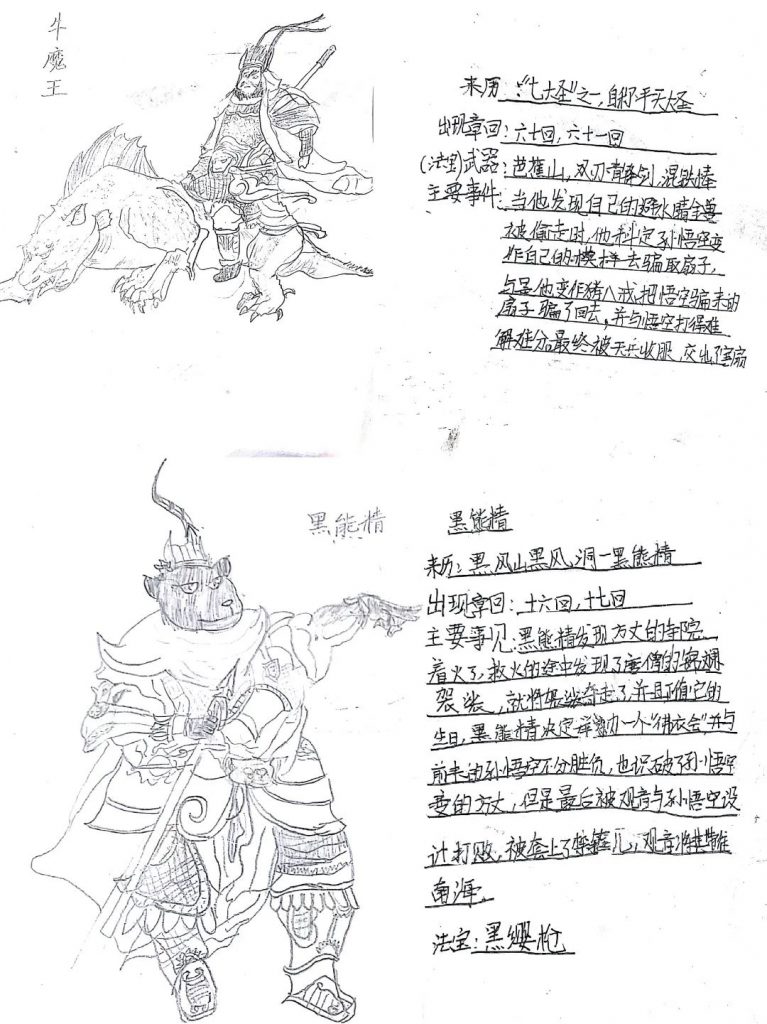 牛魔王
来历:"七大圣"之一,自称平天大圣
出现章回:六十回,六十一回
(法宝)武器:芭蕉山,双刃青锋剑,混铁棒
主要事件:当他发现自己的辟水睛金兽
被偷走时,他料定孙悟空变
作自己的模样去骗取扇子,
与是他变作猪八戒把悟空骗来的
扇子骗了回去,并与悟空打得难
解难分最终被天兵收服,交出了宝扇
黑熊精
黑熊精
来历:黑风山黑风洞一黑熊精
出现章回:十六回,十七回
主要事见:黑熊精发现方丈的寺院
着火了,救火的途中发现了唐僧的锦襕
袈裟,就将袈裟夺走了并且正值它的
生日,黑熊精决定举办一个"佛衣会"并与
前来的孙悟空不分胜负,也识破了孙悟空
变的方丈,但是最后被观音与孙悟空设
计打败,被套上了禁箍儿,观音将其带
南海。
法宝:黑缨枪